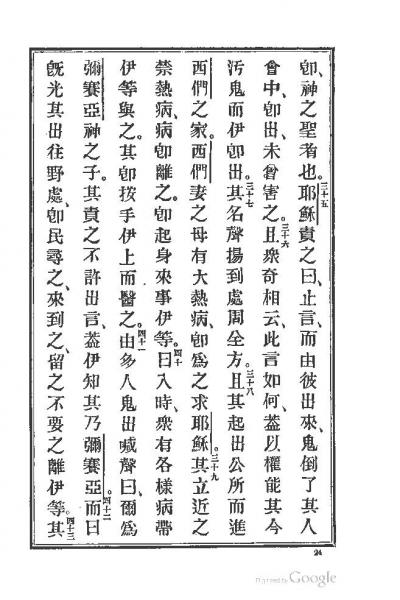 卽、神之聖者也。三十五耶穌責之曰、止言、而由彼出來、鬼倒了其人
會中、卽出、未曾害之。三十六且衆奇相云、此言如何、葢以權能其今
污鬼而伊卽出。三十七其名聲揚到處周全方。三十八且其起出公所而進
西們之家。西們妻之母有大熱病、卽爲之求耶穌。三十九其立近之
禁熱病、病卽離之。卽起身來事伊等。四十日入時、衆有各樣病帶
伊等與之。其卽按手伊上而醫之。四十一由多人鬼出喊聲曰、爾爲
彌賽亞神之子。其責之不許出言、葢伊知其乃彌賽亞。四十二而日
旣光其出往野處、卽民尋之、來到之、留之不要之離伊等。四十三其
24
Digitized by Google